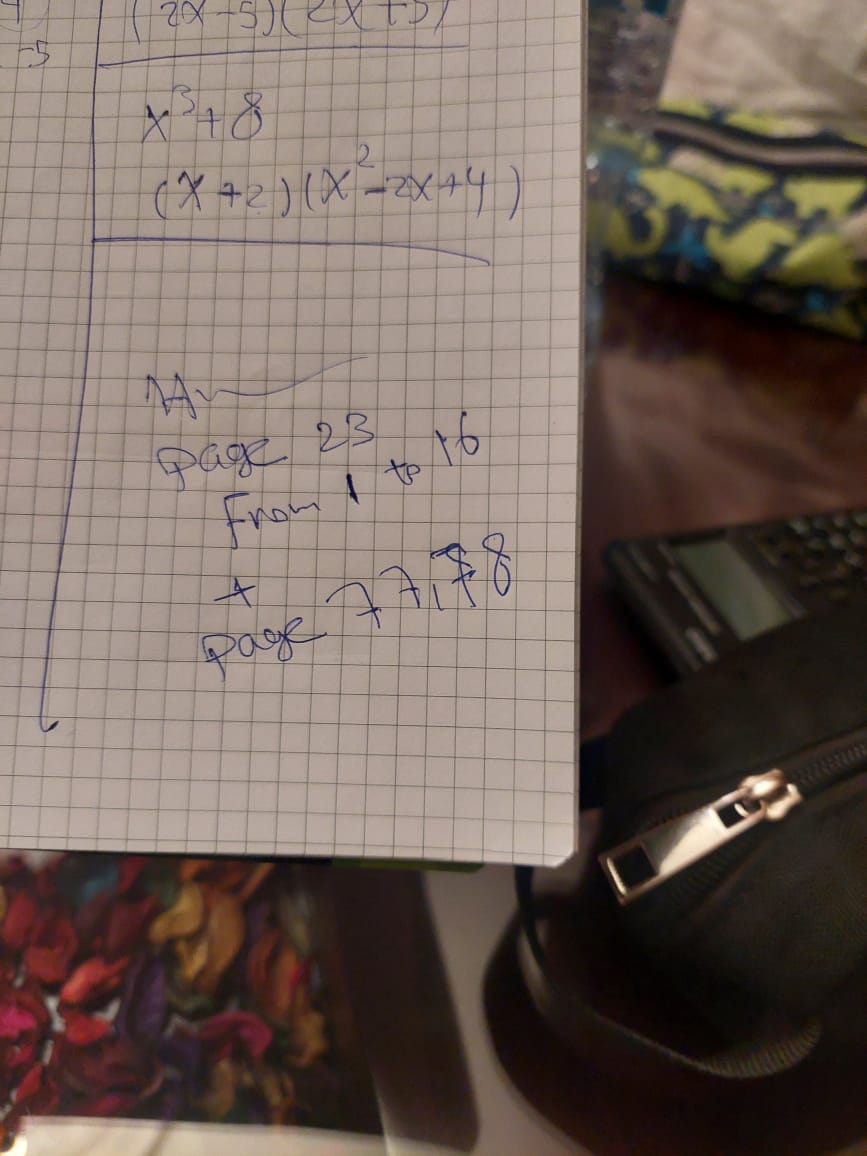 -5
(2x-5)(2x+5)
x³+8
(x+2)(x²-2x+4)
page 23
From 1 to 16
+
page 77,78